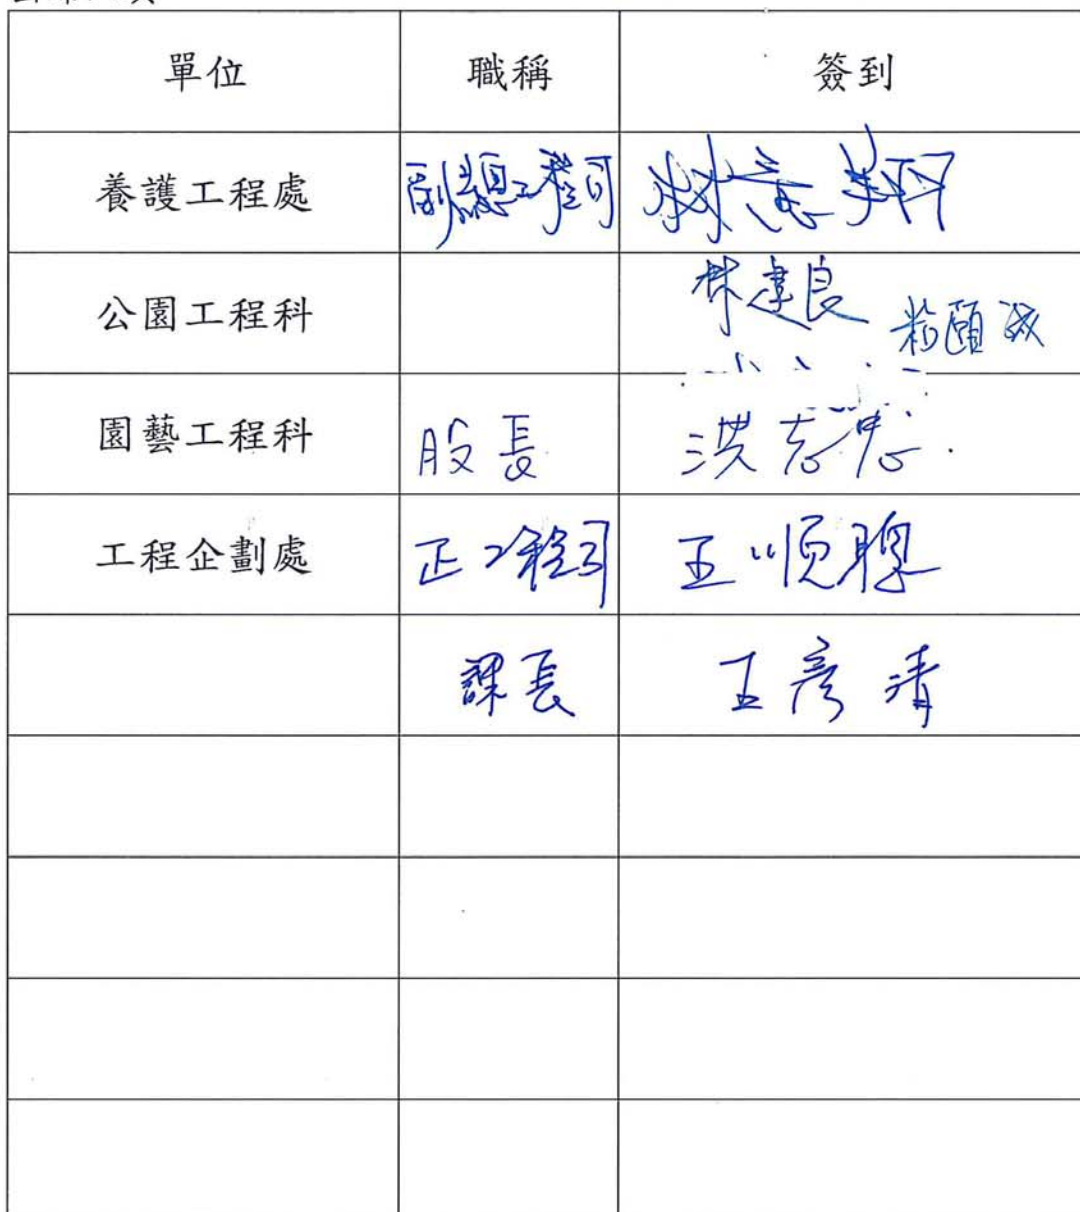 單位 職稱 簽到
養護工程處 副總工程司 林志翔
公園工程科 林建良
園藝工程科 股長 洪志忠
工程企劃處 正工程司 王順聰
課長 王彥清